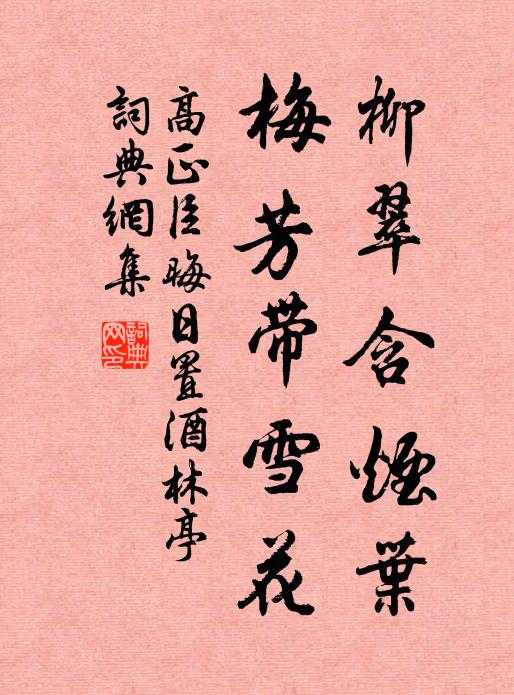 柳翠含煙葉
梅芳帶雪花
高正臣晦日置酒林亭
詞典網集
詞典
网印